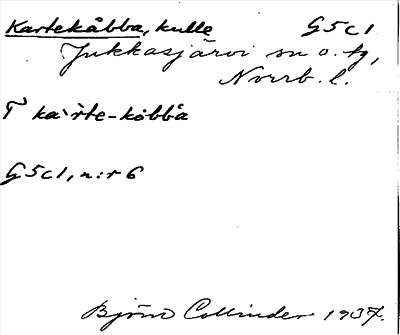 Kartekåbba, kulle G5c1
Jukkasjärvi sn o. tg,
Norrb. l.
T kà·r̀te-kåbb'a
G5c1, n:r 6
Björn Collinder 1937.